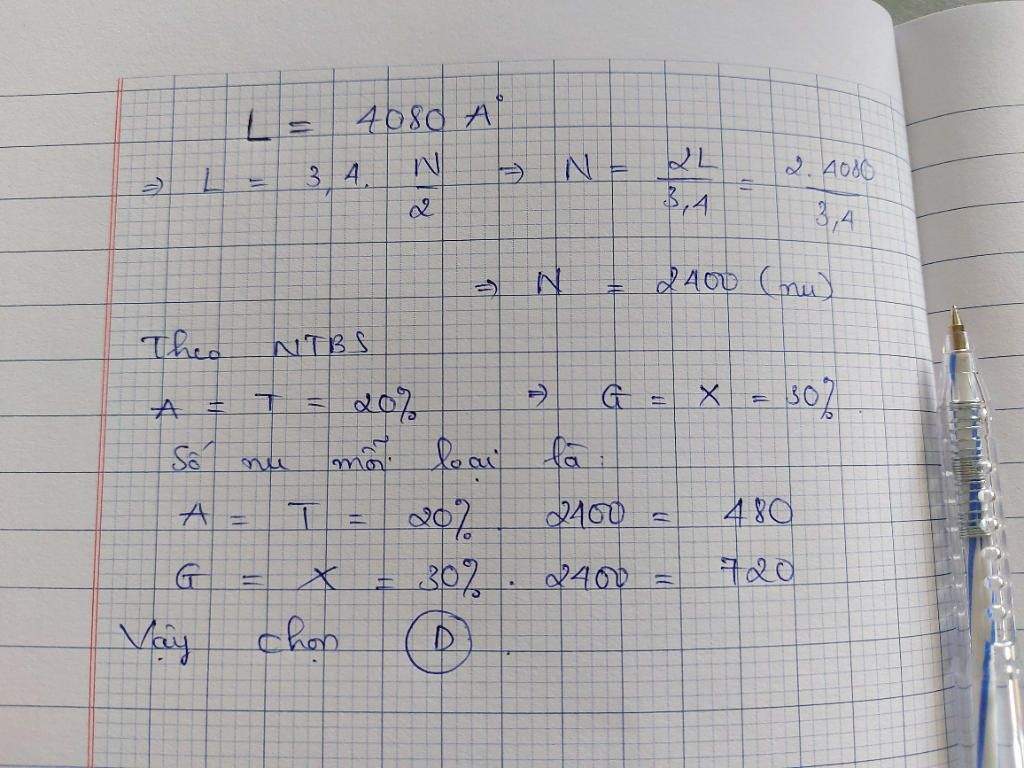 L = 4080 A°
⇒ L = 3,4. N/2 ⇒ N = 2L/3,4 = 2.4080/3,4
⇒ N = 2400 (nu)
Theo NTBS
A = T = 20% ⇒ G = X = 30%.
Số nu mỗi loại là:
A = T = 20% . 2400 = 480
G = X = 30% . 2400 = 720
Vậy chọn D.